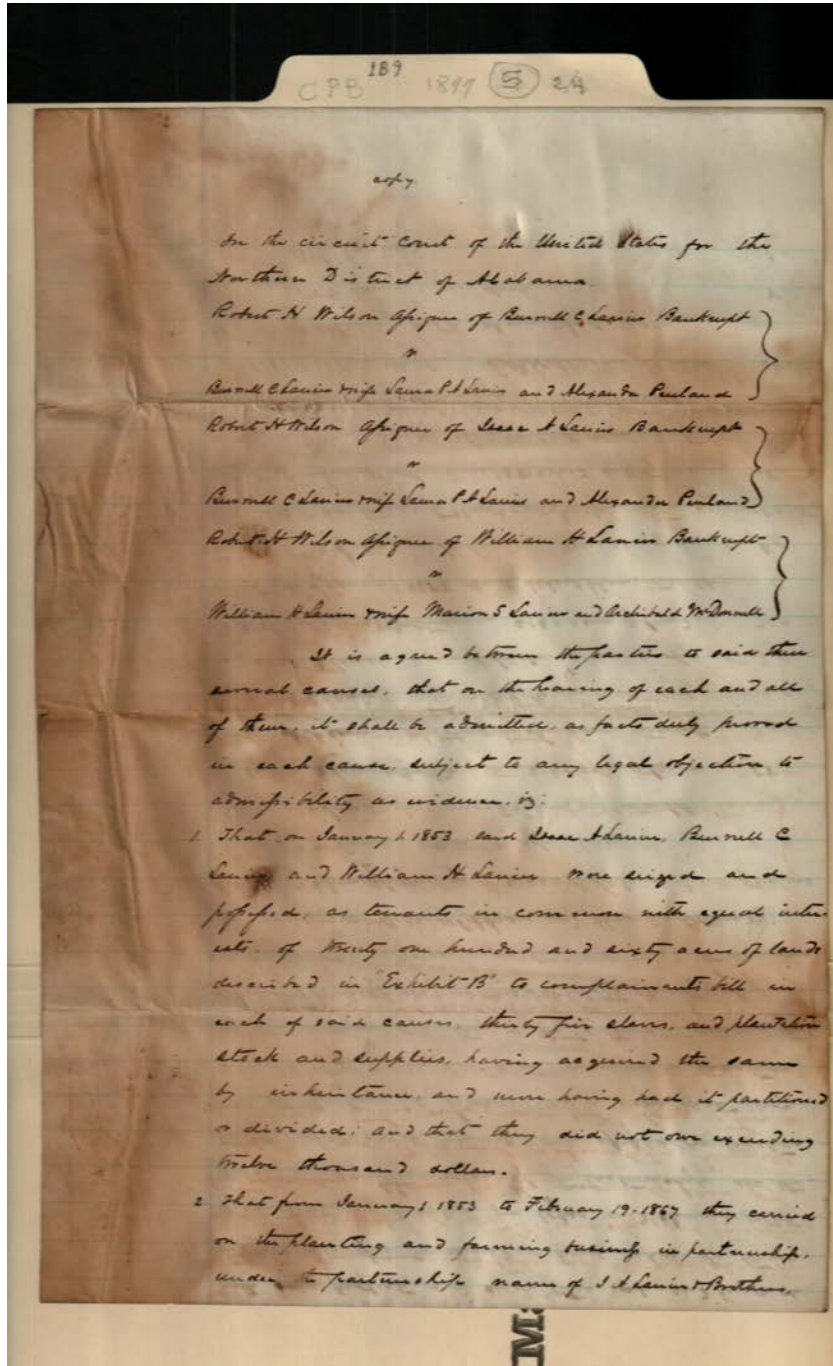 CPB 189 1897 5 24
copy
In the circuit Court of the United States for the
Northern District of Alabama
Robert H Wilson Assignee of Burwell C Lanier Bankrupt
vs
Burwell C Lanier & wife Laura P A Lanier and Alexander Penland
Robert H Wilson Assignee of Isaac A Lanier Bankrupt
vs
Burwell C Lanier & wife Laura P A Lanier and Alexander Penland
Robert H Wilson Assignee of William H Lanier Bankrupt
vs
William H Lanier & wife Marion S Lanier and Archibald McDonnell
It is agreed between the parties to said three
several causes, that on the hearing of each and all
of them, it shall be admitted, as facts duly proved
in each cause, subject to any legal objection to
admissibility as evidence, viz:
1 That on January 1 1853 said Isaac A Lanier, Burwell C
Lanier and William H Lanier were seized and
possessed, as tenants in common with equal inter-
ests, of twenty one hundred and sixty acres of lands
described in "Exhibit B" to complainants bill in
each of said causes, thirty five slaves, and plantation
stock and supplies, having acquired the same
by inheritance, and never having had it partitioned
or divided; and that they did not owe exceeding
twelve thousand dollars.
2 That from January 1 1853 to February 19-1867 they carried
on the planting and farming business in partnership,
under partnership name of I A Lanier & Brothers,